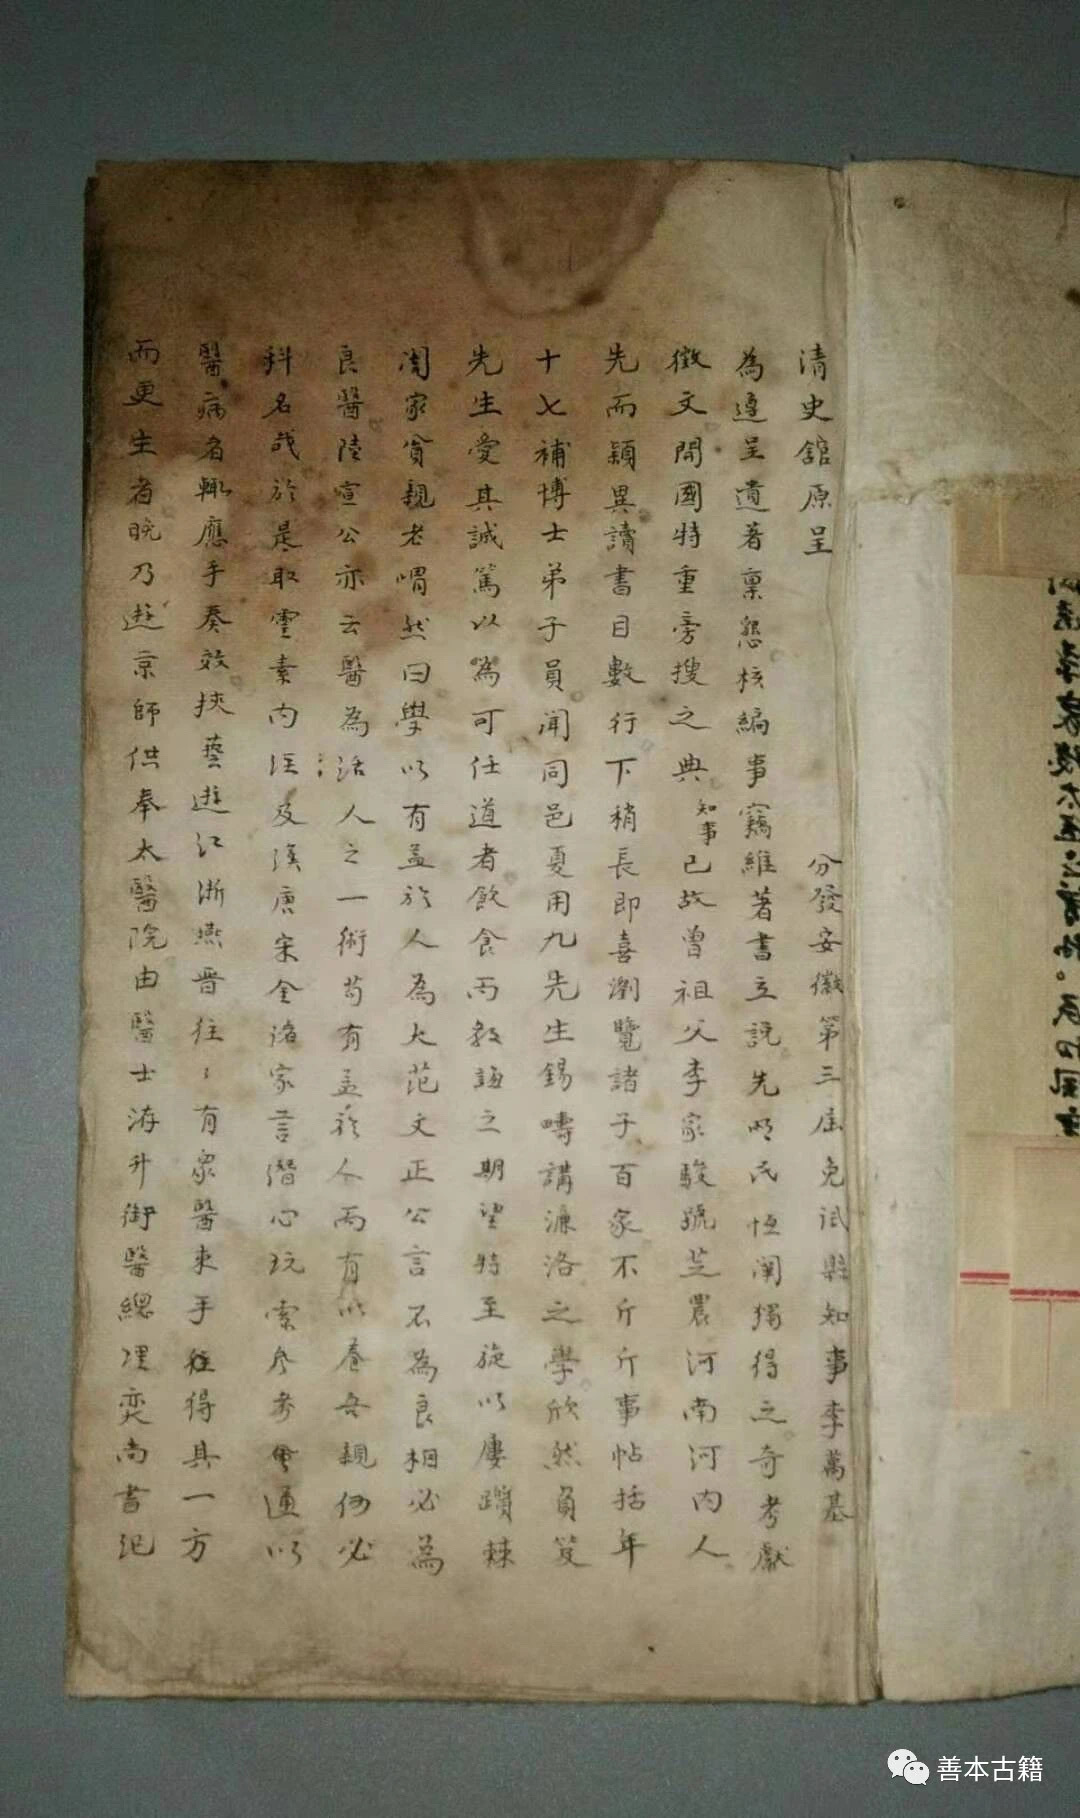 清史舘原呈　分發安徽第三屆免試縣知事李萬基
為遵呈遺著稟懇核編事竊維著書立說先明氏恒闡獨得之奇考獻
徵文開國特重旁搜之典知事已故曾祖父李家駿號芝農河南河內人
先而穎異讀書目數行下稍長即喜瀏覽諸子百家不斤斤事帖括年
十七補博士弟子員聞同邑夏用九先生錫疇講濂洛之學欣然負笈
先生愛其誠篤以為可任道者飲食而教誨之期望特至旋以屢躓棘
闈家貧親老喟然曰學以有益於人為大范文正公言不為良相必為
良醫陸宣公亦云醫為活人之一術苟有益於人而有以養吾親何必
科名哉於是取靈素內注及漢唐宋金諸家言潛心玩索參考通以
醫病者輒應手奏效挾藝遊江浙燕晋往往有眾醫束手程得其一方
而更生者晚乃遊京師供奉太醫院由醫士洊升御醫總理奕尚書紀
善本古籍